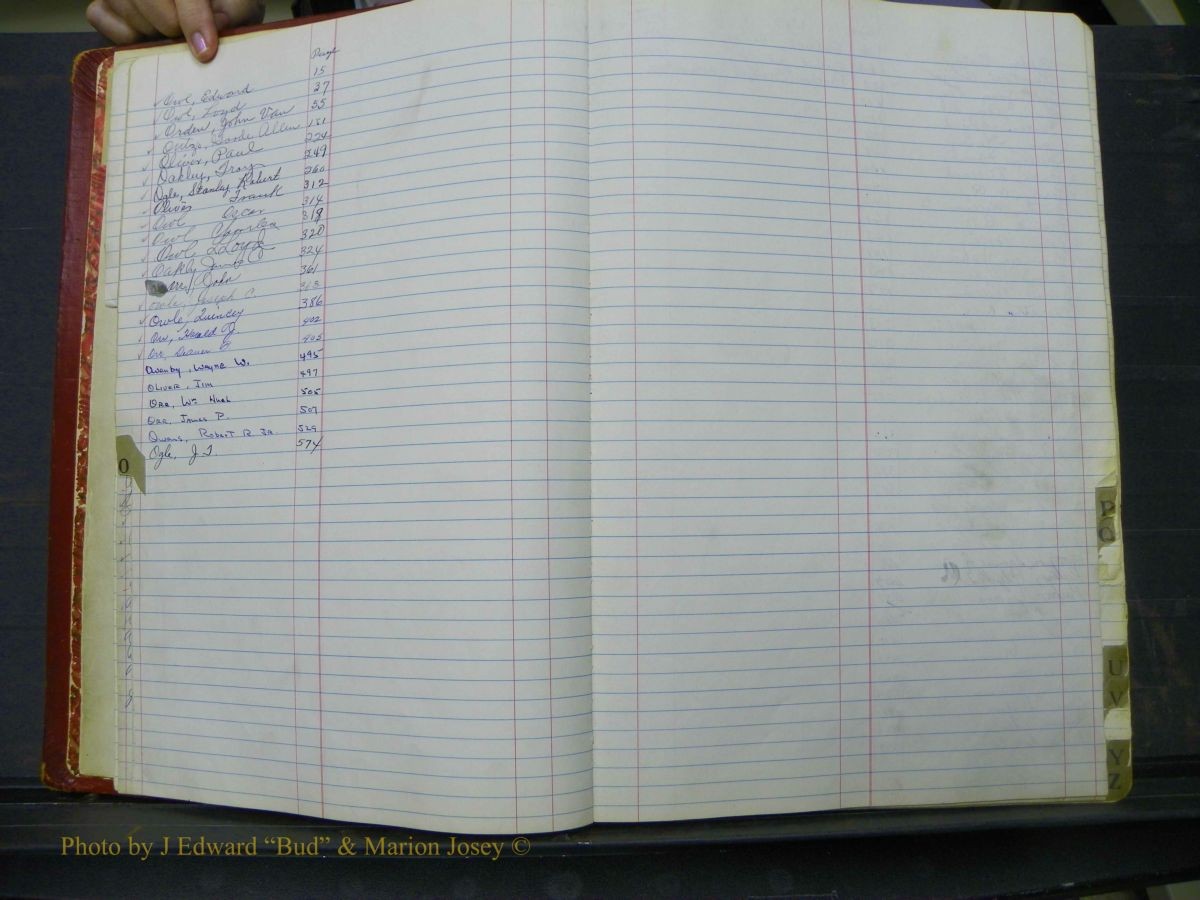 Page
Owl, Edward 15
Owl, Loyd 37
Orden, John Van 55
Allen 151
Oliver, Paul 224
Oakley, Troy 249
Ogle, Stanley Robert 260
Oliver Frank 312
Owl Oscar 314
Owl Charles 319
Owl Lloyd 320
Oakly 324
John 361
Owle, Joseph C. 363
Owle, Quincey 386
Orr, Harold J. 402
Orr, 405
Owenby, Wayne W. 495
Oliver, Jim 497
Orr, Wm Hugh 505
Orr, James P. 507
Owens, Robert R. Jr. 529
Ogle, J.T. 574
O
P
Q
U
V
Y
Z
Photo by J Edward “Bud” & Marion Josey ©